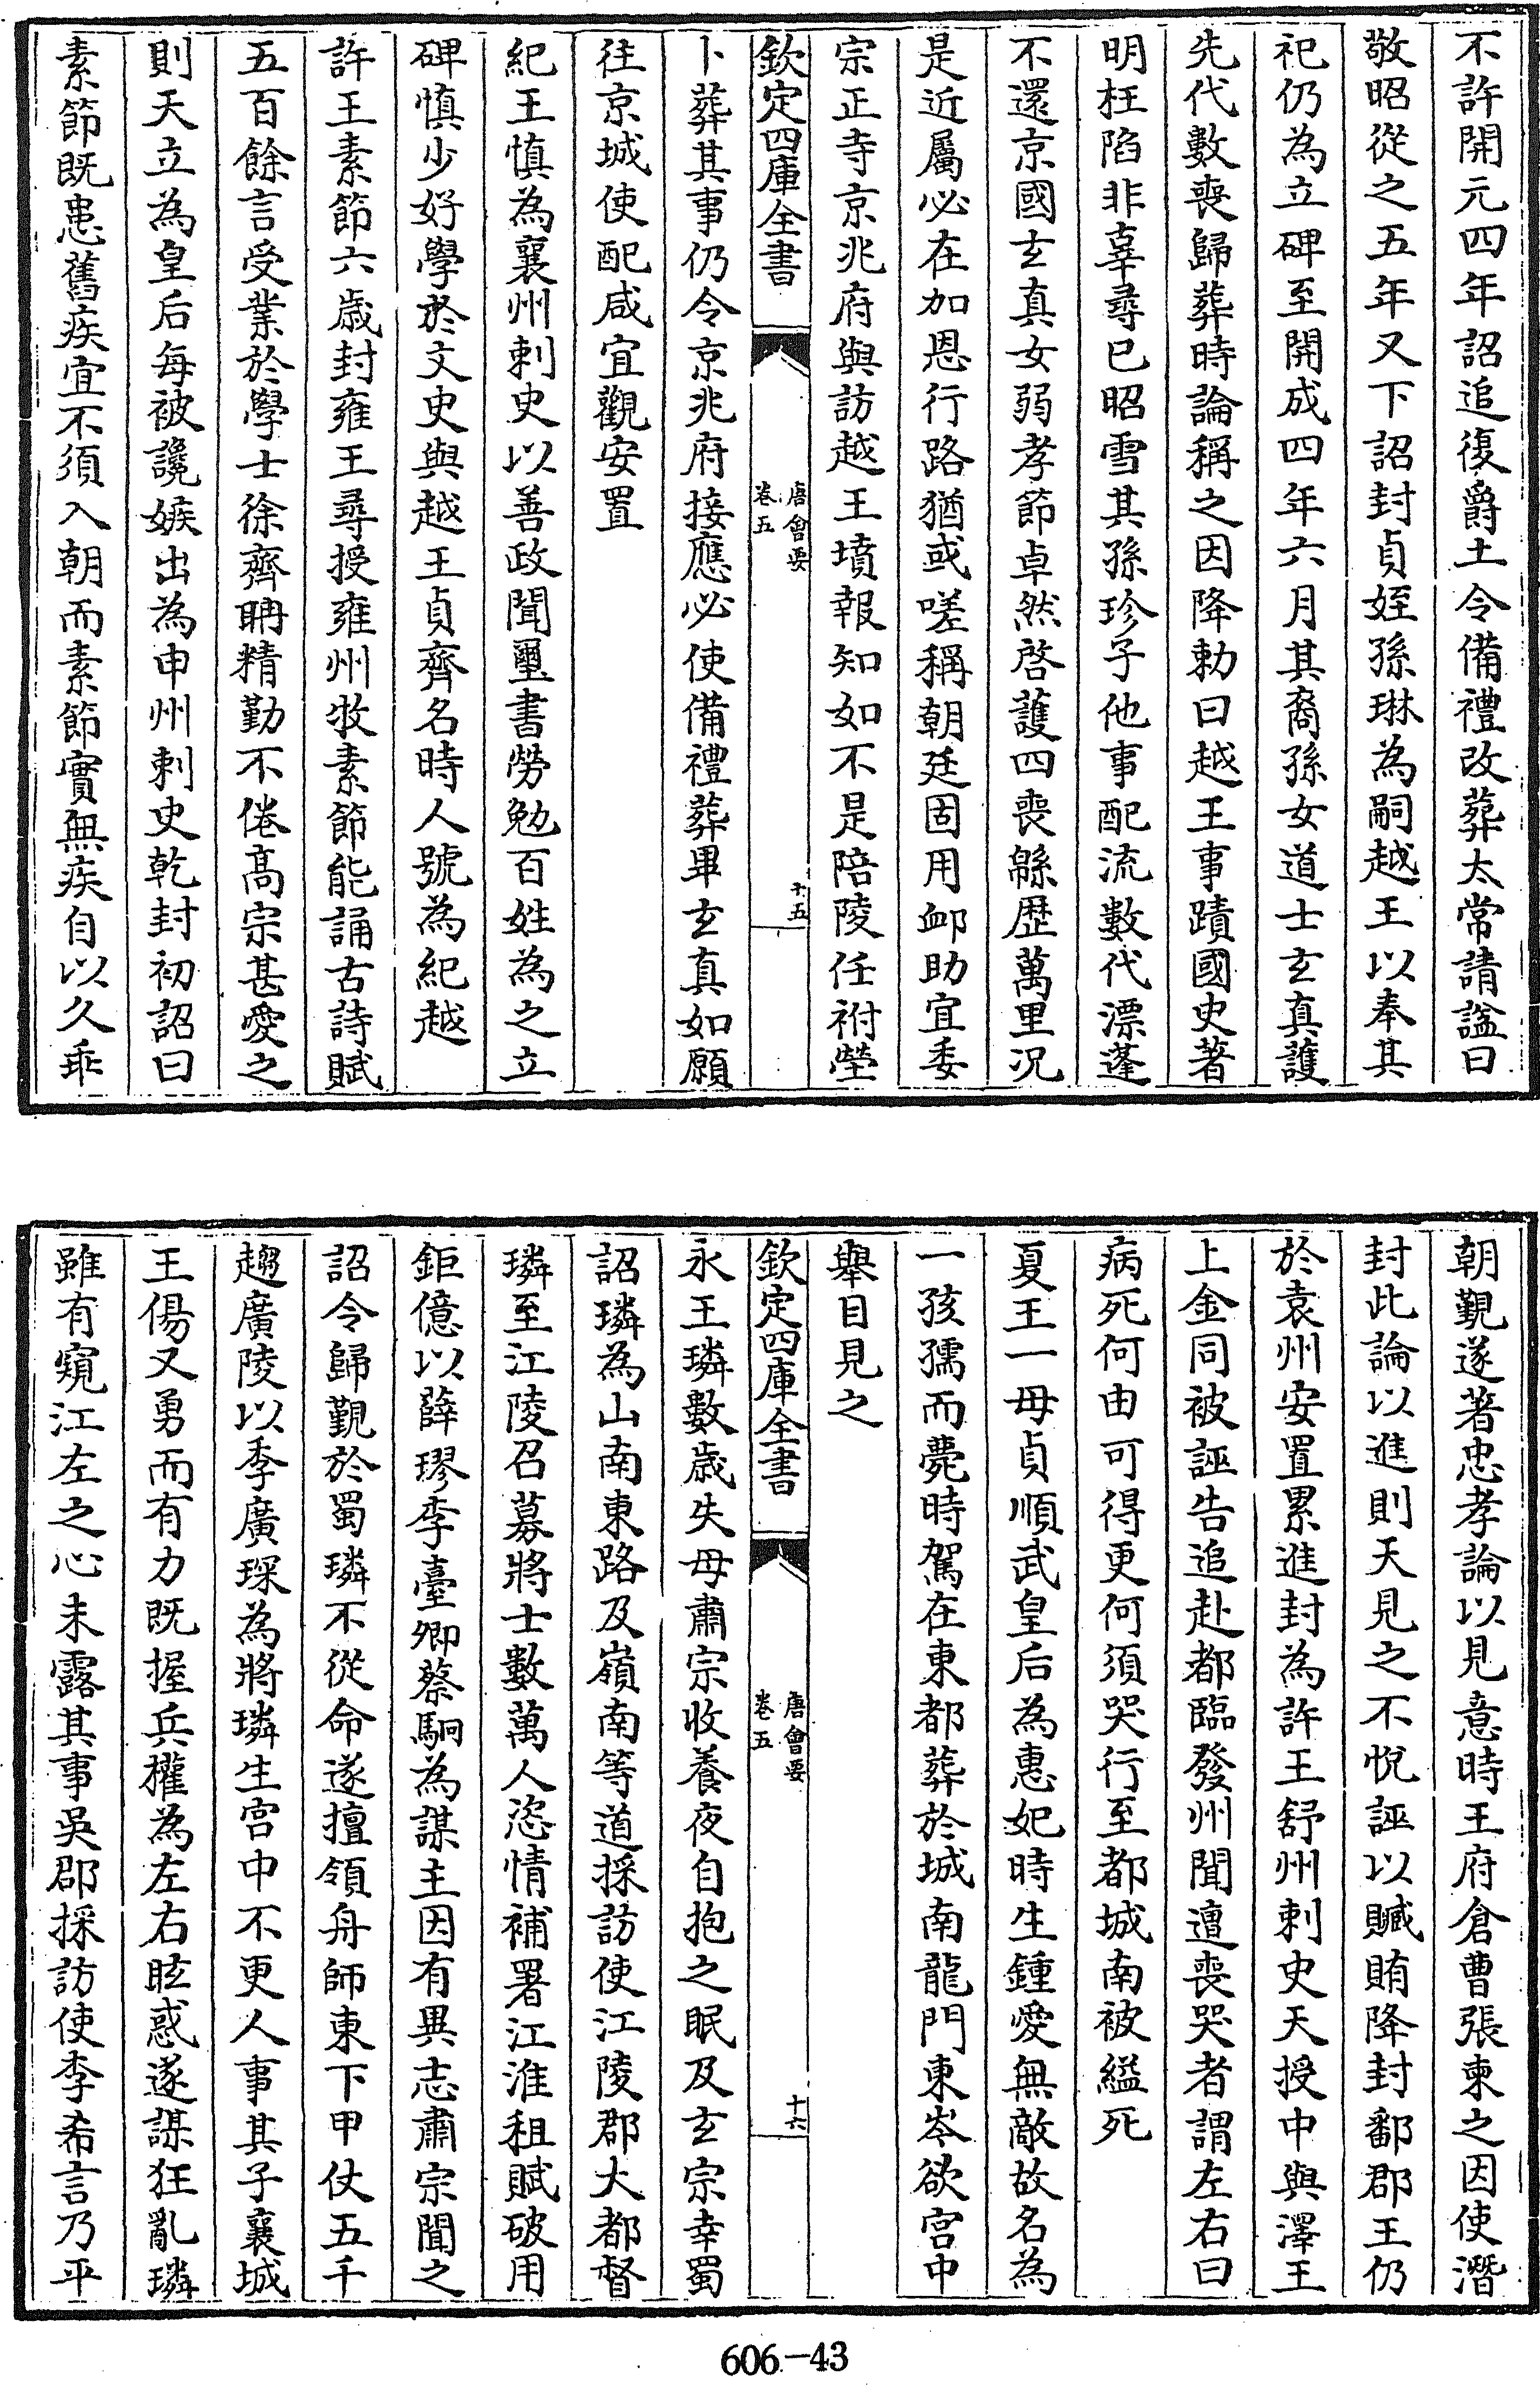 不許開元四年詔追復爵土令備禮改葬太常請諡曰
敬昭從之五年又下詔封貞姪孫琳為嗣越王以奉其
祀仍為立碑至開成四年六月其裔孫女道士玄真護
先代數喪歸葬時論稱之因降勅曰越王事蹟國史著
明枉陷非辜尋已昭雪其孫珍子他事配流數代漂蓬
不還京國玄真女弱孝節卓然啓護四喪緜歴萬里况
是近屬必在加恩行路猶或嗟稱朝廷固用䘏助宜委
宗正寺京兆府與訪越王墳報知如不是陪陵任祔塋
欽定四庫全書
唐會要
卷五
十五
卜葬其事仍令京兆府接應必使備禮葬畢玄真如願
往京城使配咸宜觀安置
紀王慎為襄州刺史以善政聞璽書勞勉百姓為之立
碑慎少好學於文史與越王貞齊名時人號為紀越
許王素節六歲封雍王尋授雍州牧素節能誦古詩賦
五百餘言受業於學士徐齊聃精勤不倦高宗甚愛之
則天立為皇后每被讒嫉出為申州刺史乾封初詔曰
素節既患舊疾宜不須入朝而素節實無疾自以久乖
朝覲遂著忠孝論以見意時王府倉曹張柬之因使潛
封此論以進則天見之不悅誣以贓賄降封鄱郡王仍
於袁州安置累進封為許王舒州刺史天授中與澤王
上金同被誣告追赴都臨發州聞遭喪哭者謂左右曰
病死何由可得更何須哭行至都城南被縊死
夏王一母貞順武皇后為惠妃時生鍾愛無敵故名為
一孩孺而薨時駕在東都葬於城南龍門東岑欲宮中
舉目見之
欽定四庫全書
唐會要
卷五
十六
永王璘數歲失母肅宗收養夜自抱之眠及玄宗幸蜀
詔璘為山南東路及嶺南等道採訪使江陵郡大都督
璘至江陵召募將士數萬人恣情補署江淮租賦破用
鉅億以薛璆李臺卿蔡駉為謀主因有異志肅宗聞之
詔令歸覲於蜀璘不從命遂擅領舟師東下甲仗五千
趨廣陵以季廣琛為將璘生宮中不更人事其子襄城
王偒又勇而有力既握兵權為左右眩惑遂謀狂亂璘
雖有窺江左之心未露其事吳郡採訪使李希言乃平
606-43